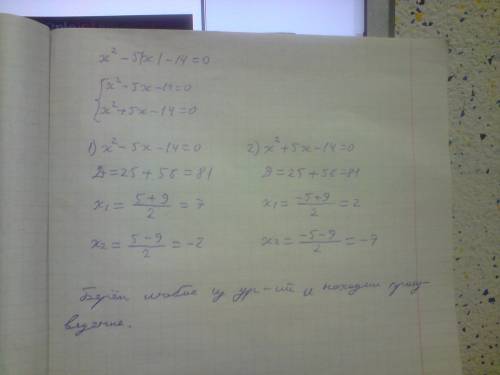 x² - 5|x| - 14 = 0
{x² - 5x - 14 = 0
{x² + 5x - 14 = 0
1) x² - 5x - 14 = 0
D = 25 + 56 = 81
x₁ = (5 + 9)/2 = 7
x₂ = (5 - 9)/2 = -2
2) x² + 5x - 14 = 0
D = 25 + 56 = 81
x₁ = (-5 + 9)/2 = 2
x₂ = (-5 - 9)/2 = -7
Берём любое из ур-ий и находим произ-
ведение.